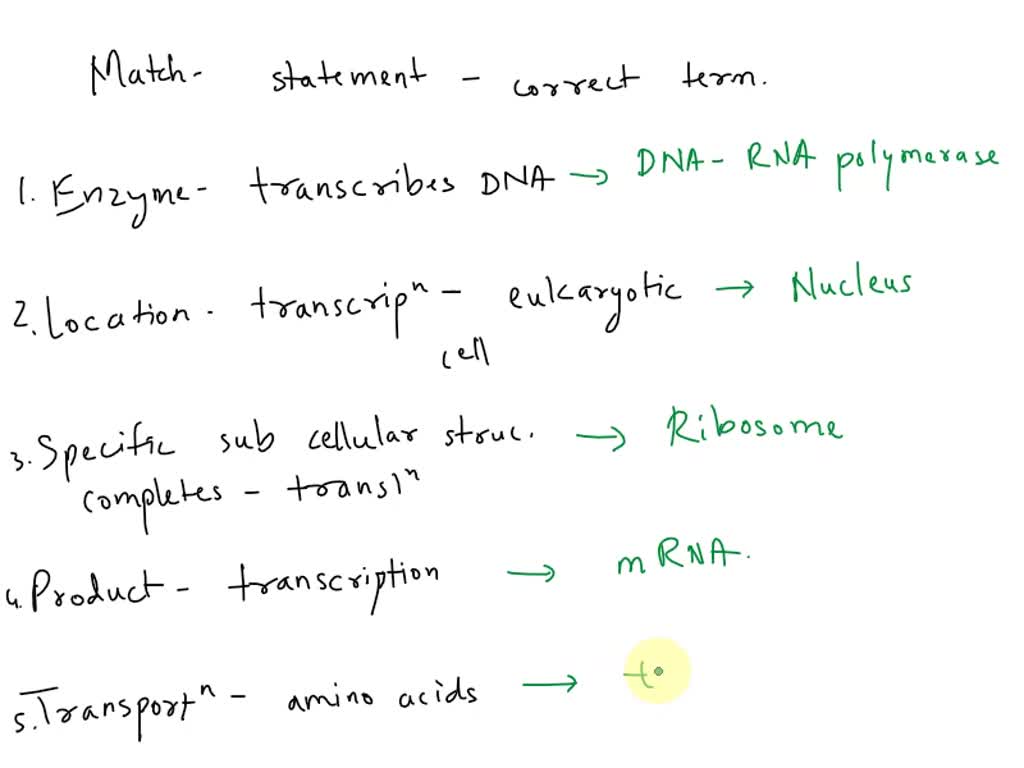 Match - statement - correct term.
1. Enzyme - transcribes DNA → DNA - RNA polymerase
2. Location. transcripⁿ - eukaryotic → Nucleus
cell
3. Specific sub cellular struc. → Ribosome
completes - translⁿ
4. Product - transcription → mRNA.
5. Transportⁿ - amino acids → t